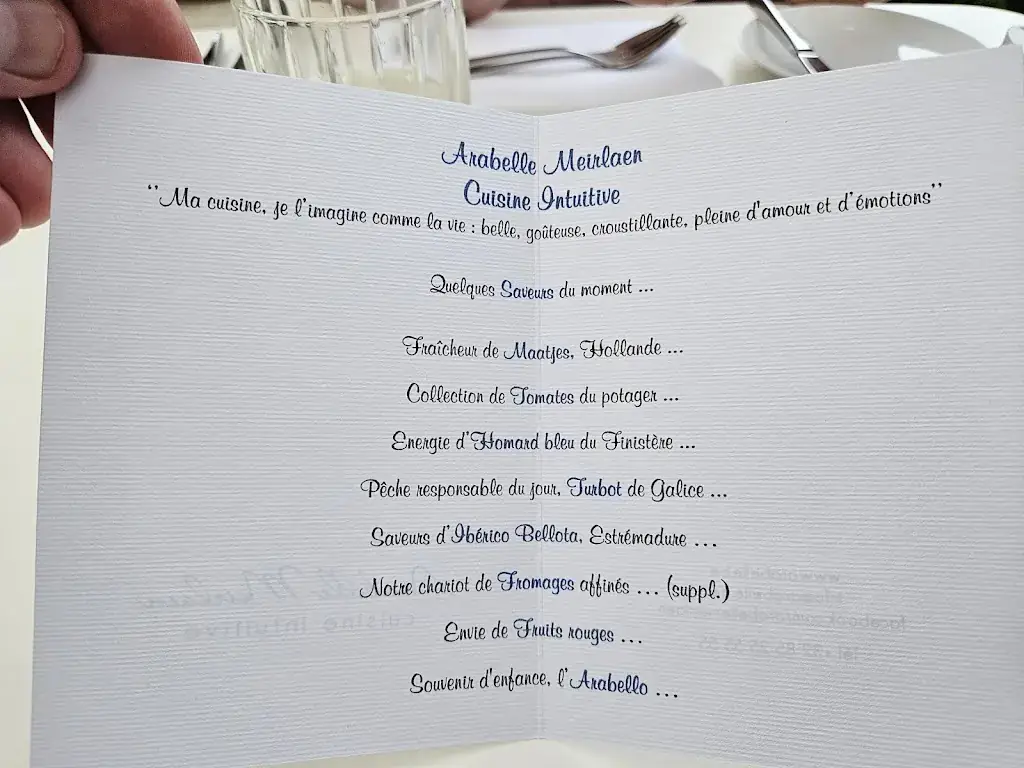 Arabelle Meirlaen
Cuisine Intuitive
"Ma cuisine, je l'imagine comme la vie : belle, goûteuse, croustillante, pleine d'amour et d'émotions"
Quelques Saveurs du moment ...
Fraîcheur de Maatjes, Hollande ...
Collection de Tomates du potager ...
Energie d'Homard bleu du Finistère ...
Pêche responsable du jour, Turbot de Galice ...
Saveurs d'Ibérico Bellota, Estrémadure ...
Notre chariot de Fromages affinés ... (suppl.)
Envie de Fruits rouges ...
Souvenir d'enfance, l'Arabello ...
cuisine intuitive